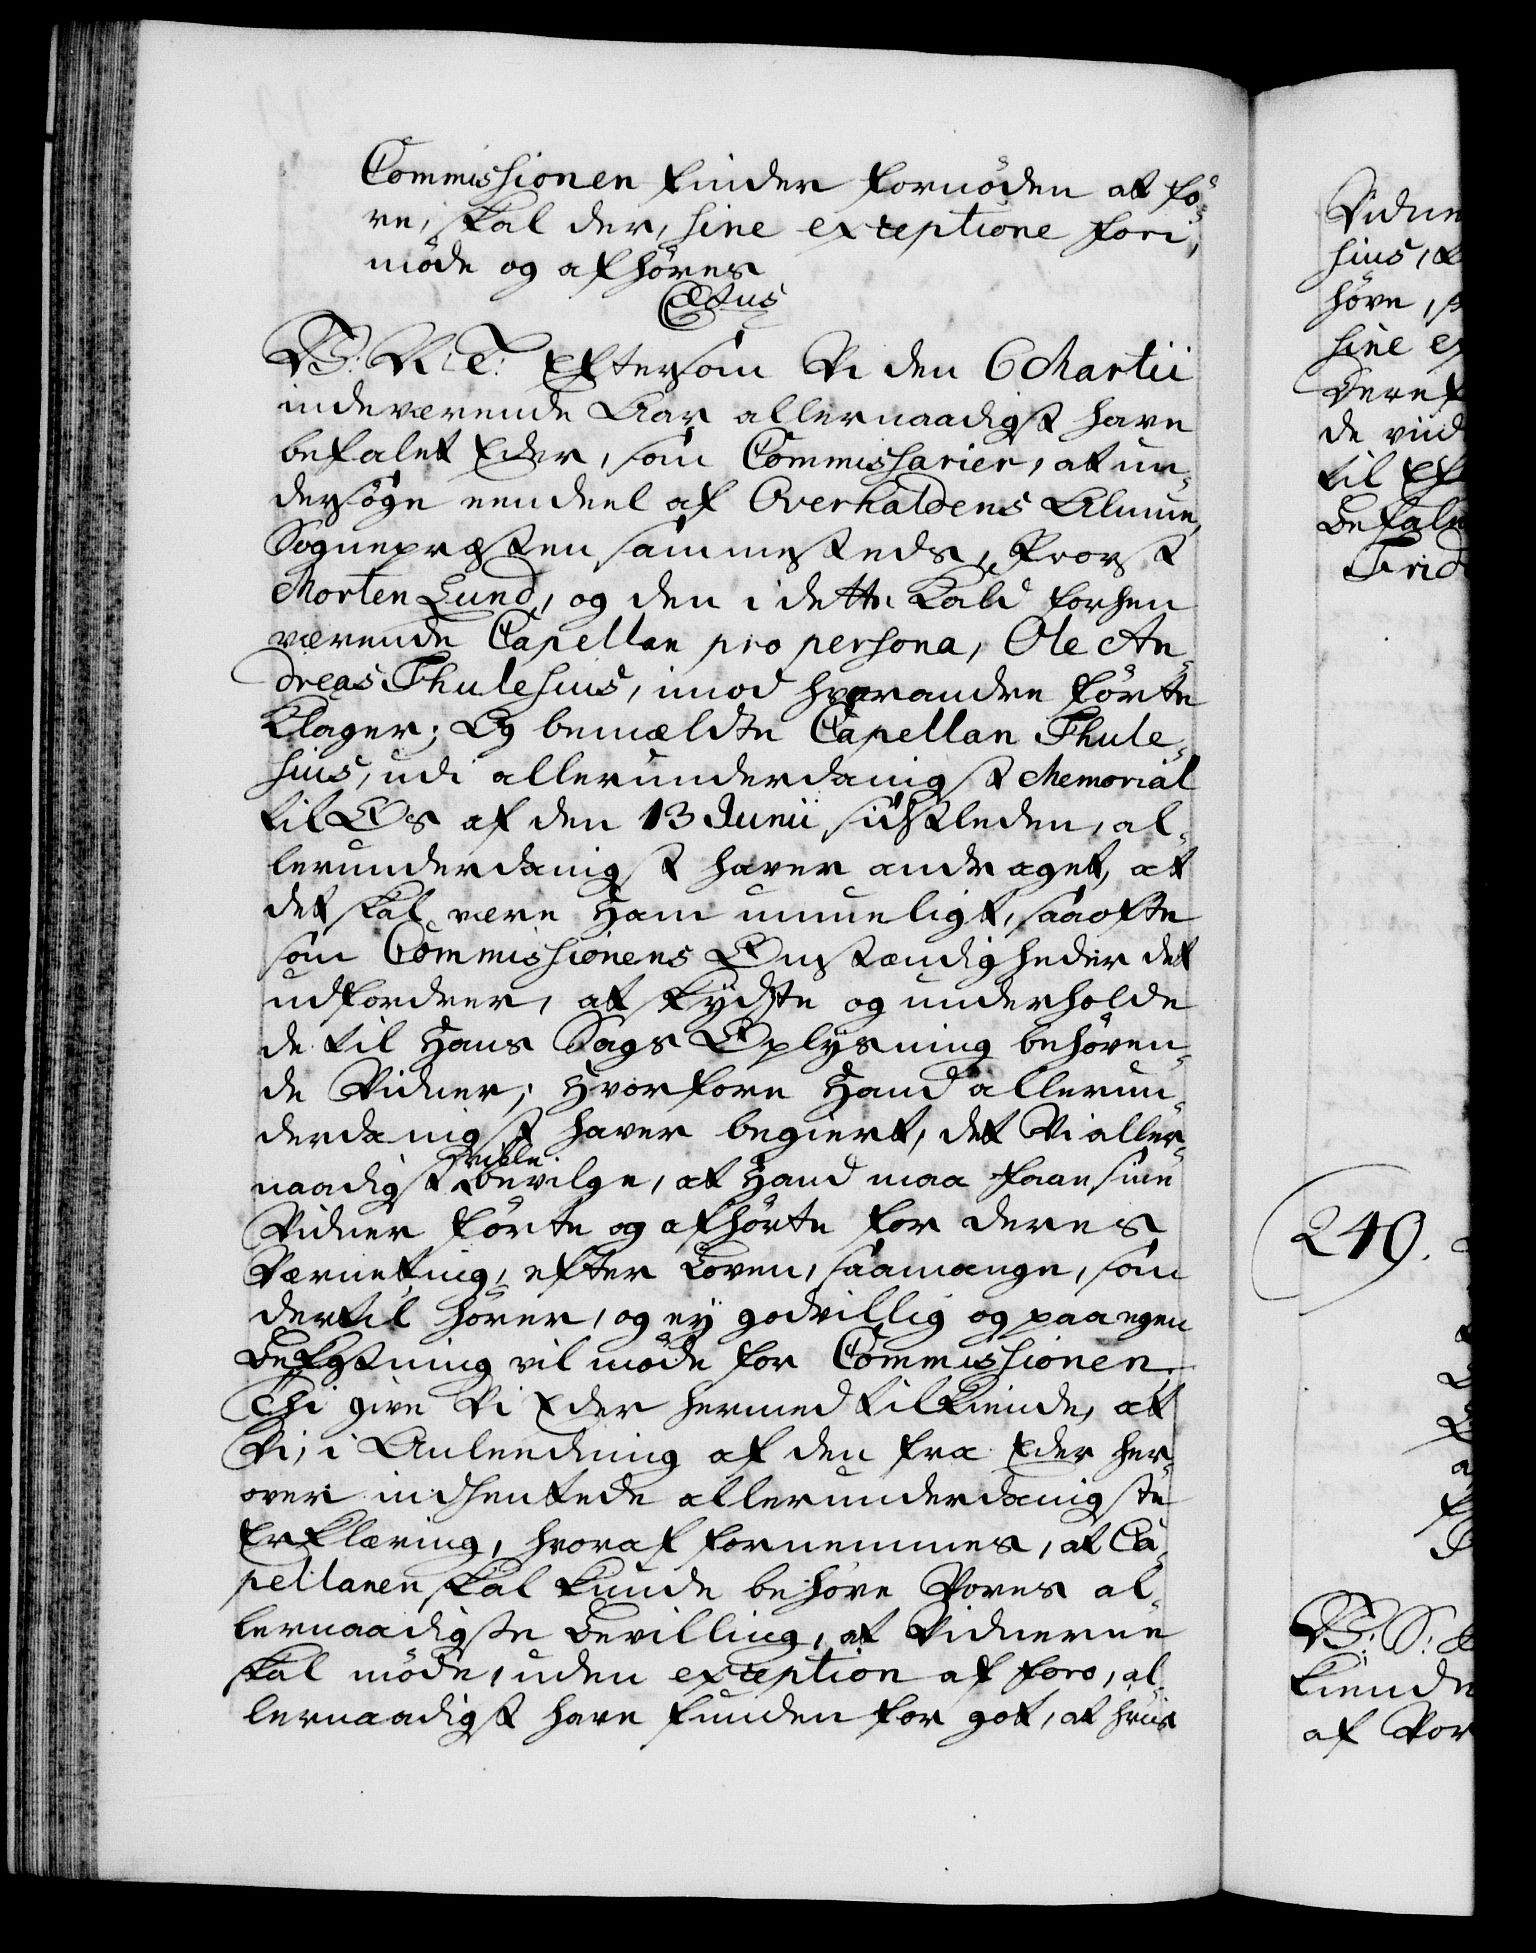 Commissionen finder fornöden at fö-
re, skal der, sine exceptione fori,
möde og afhöres
V: V: T: Eftersom Vi den 6 Martii
indeværende Aar allernaadigst have
befalet Eder, som Commissarier, at un-
dersöge eendeel af Overhaldens Almue,
Sognepræsten sammesteds, Provst
Morten Lund, og den i dette Kald forhen
værende Capellan pro persona, Ole An-
dreas Thulesius, imod hverandre förte
Klager; Og bemældte Capellan Thule-
sius, udi allerunderdanigst Memorial
til Os af den 13 Junii sidstleden, al-
lerunderdanigst haver andraget, at
det skal være Ham umueligt, saa ofte
som Commissionens Omstændigheder det
udfordrer, at skydste og underholde
de til Hans Sags Oplysning behöven-
de Vidner; Hvorfore Hand allerun-
derdanigst haver begiert, det Vi aller-
naadigst ville bevilge, at Hand maa faae sine
Vidner förte og afhörte for deres
Værneting, efter Loven, saamange, som
dertil hörer, og ey godvillig og paa egen
Bekostning vil möde for Commissionen.
Thi give Vi Eder hermed tilkiende, at
Vi, i Anleedning af den fra Eder her-
over indhentede allerunderdanigste
Erklæring, hvoraf fornemmes, at Ca-
pellanen skal kunde behöve Vores al-
lernaadigste Bevilling, at Vidnerne
skal möde, uden exception af foro, al-
lernaadigst have funden for got, at hvis
Vidne
sius,
höre,
sine ex
Deref
de viid
til Ef
Befale
Frid
249.
V: S:
kiende
af Vor